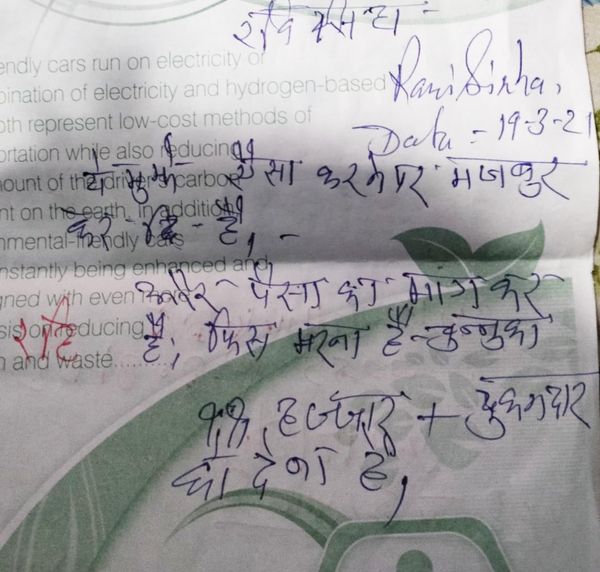 रवि सिन्हा
endly cars run on electricity or
bination of electricity and hydrogen-based
Ravi Sinha,
oth represent low-cost methods of
Date - 19-3-21
ortation while also reducing
ये मुझे ऐसा करने पर मजबुर
ount of the driver's carbon
nt on the earth. In addition
कर रहे है,
nmental-friendly cars
nstantly being enhanced and
और पैसा का मांग कर
gned with even
रहे
है, फिस भरना है मुन्नुका
sis on reducing
n and waste
हजार + दुकानदार
को देना है,